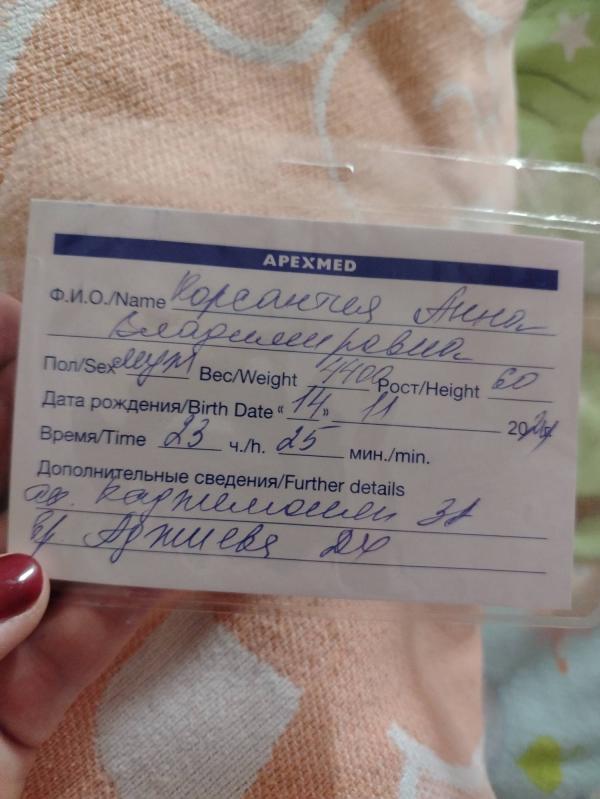 APEXMED
Ф.И.О./Name Корсантия Анна
Владимировна
Пол/Sex муж Вес/Weight 4400 Рост/Height 60
Дата рождения/Birth Date “14” 11 2024
Время/Time 23 ч./h. 25 мин./min.
Дополнительные сведения/Further details
ЗА
вр.